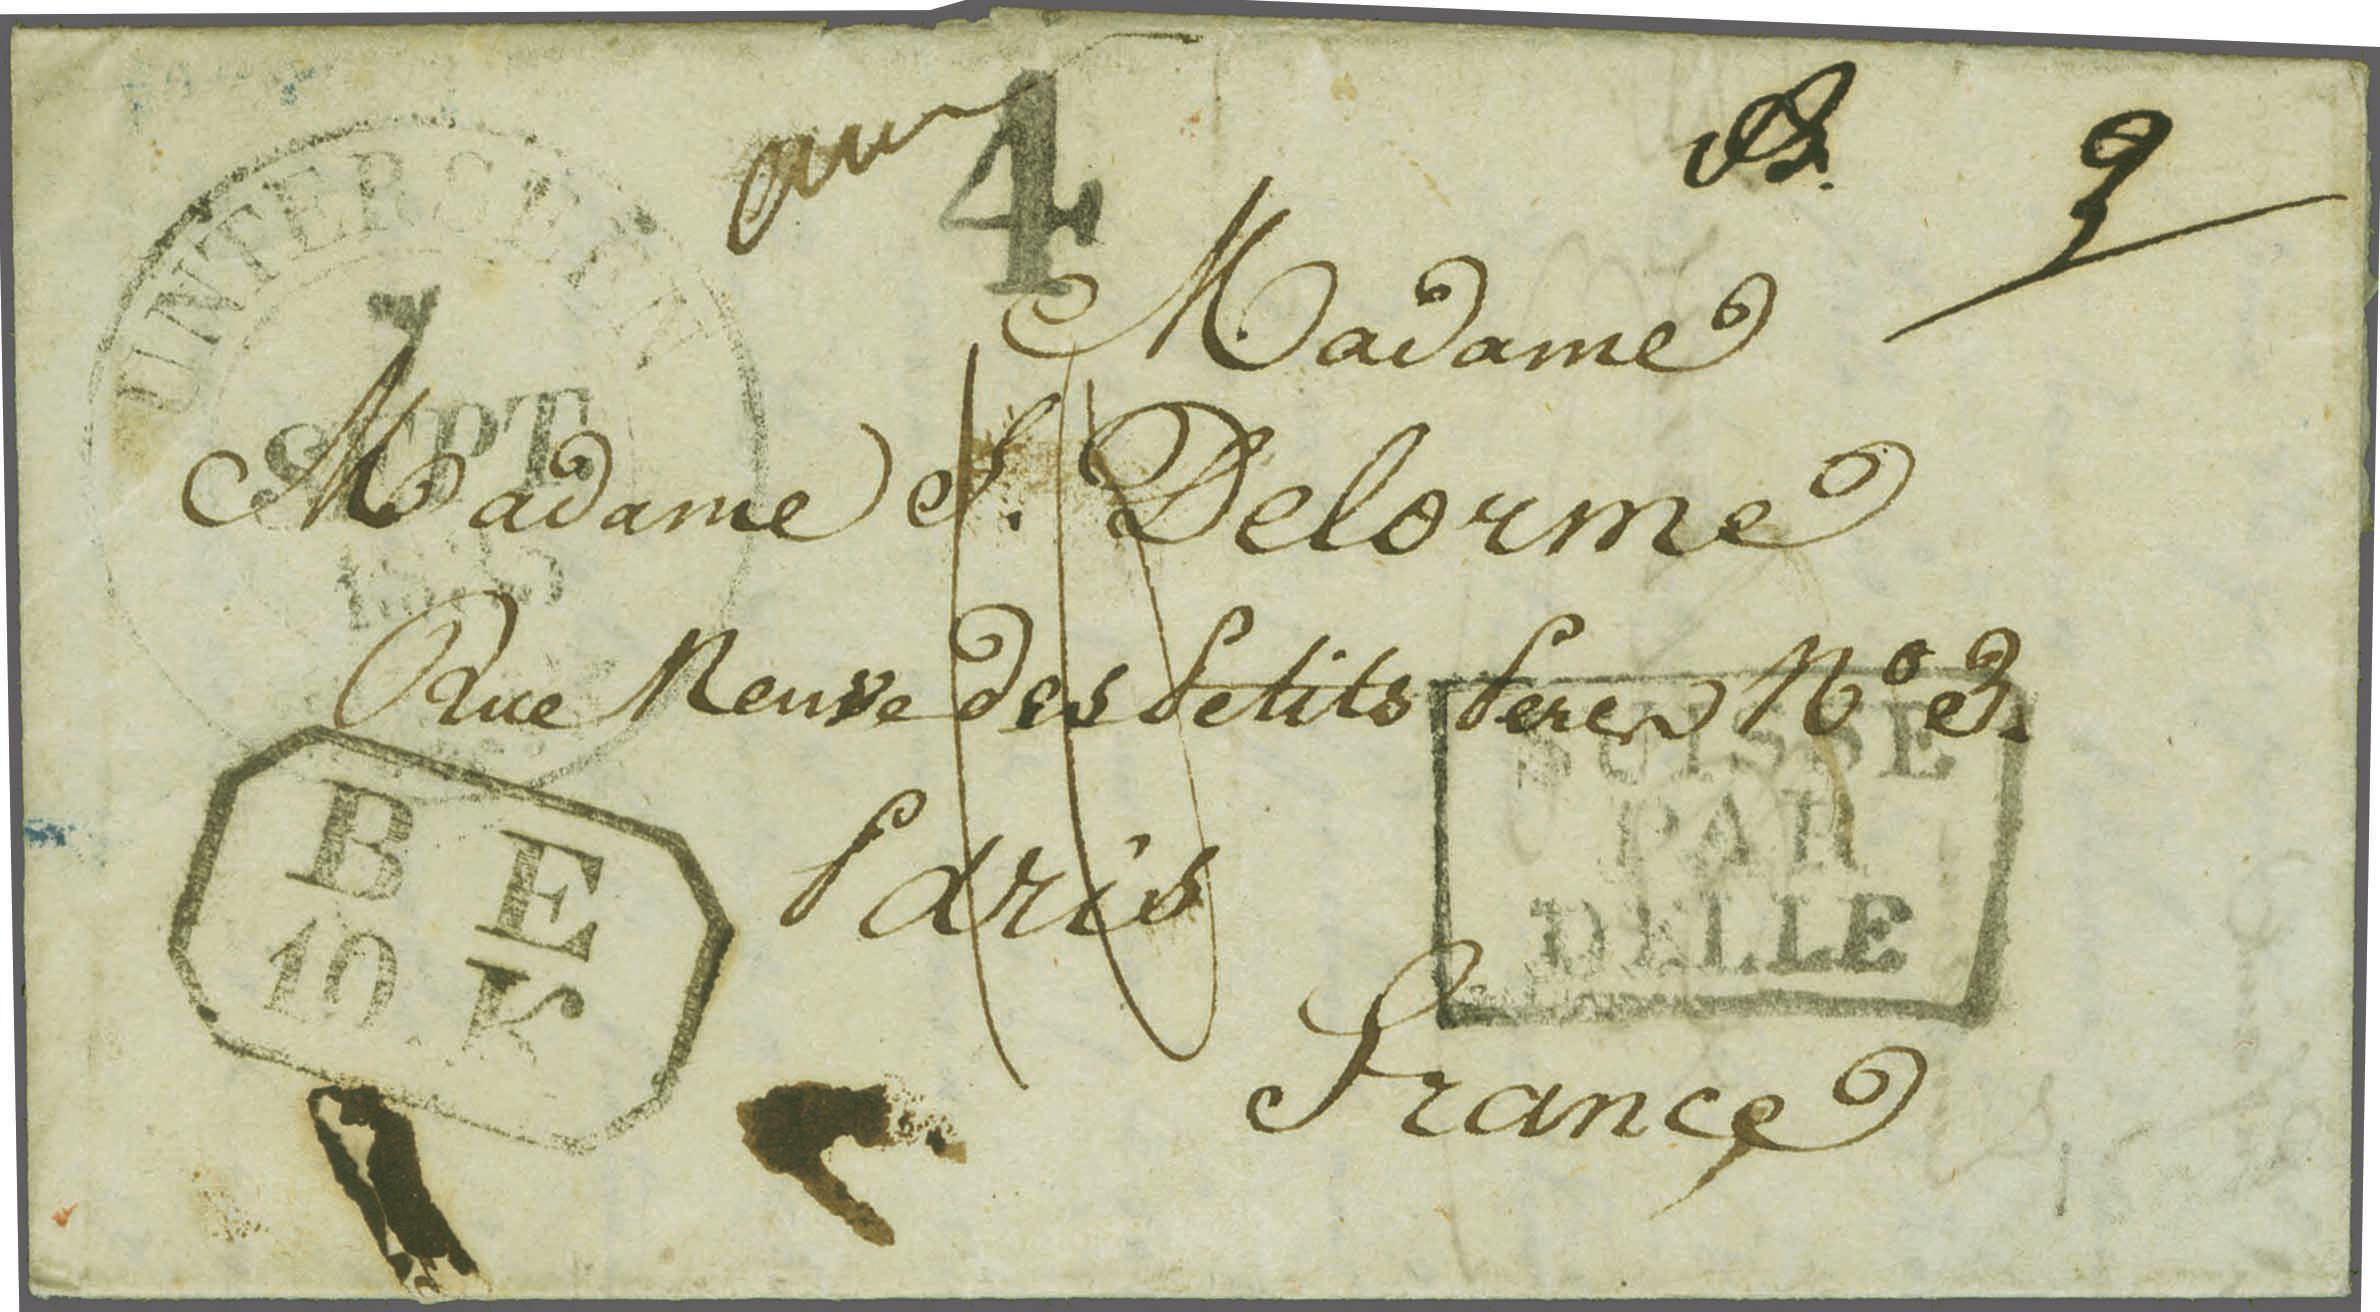 4
B.
UNTERSEEN
7
SEPT
Madame
Madame S. Delorme
Rue Neuve des Petits Peres N° 3.
Paris
France
B E
10 K
SUISSE
PAR
DELLE